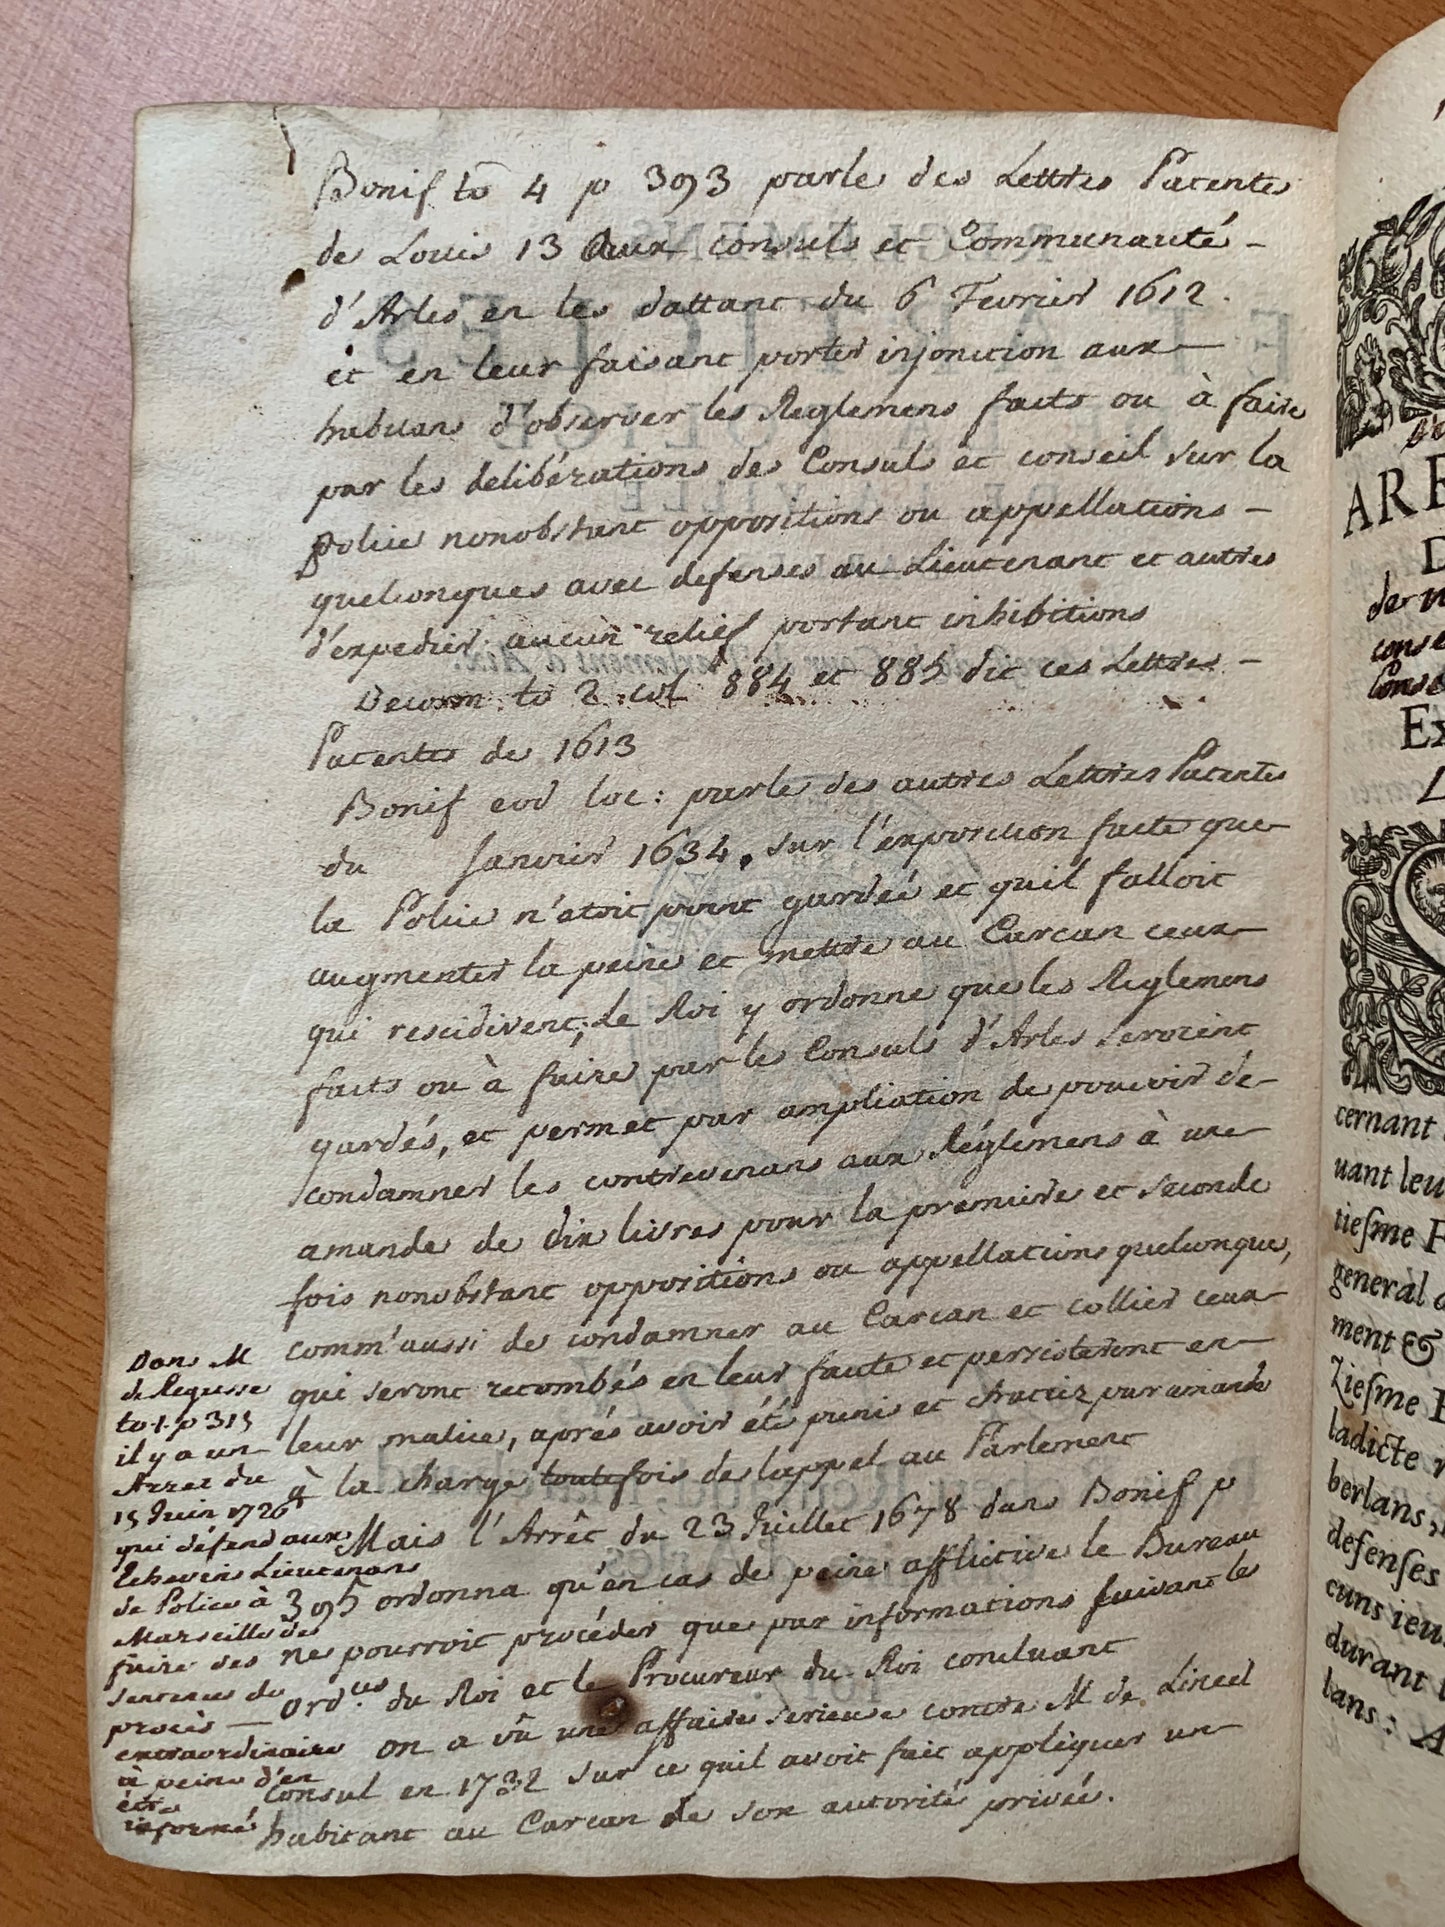 Bonif to 4 p 393 parle des Lettres Patentes
de Louis 13 Aux consuls et Communauté -
d'Arles en les dattant du 6 Fevrier 1612.
et en leur faisant porter injonction aux
habitans d'observer les Reglemens faits ou à faire
par les delibérations des Consuls et conseil sur la
police nonobstant oppositions ou appellations -
quelconques avec defenses au Lieutenant et autres
d'expedier aucun relief portant inhibitions
Decorm. to 2 col 884 et 885 dit ces Lettres -
Patentes de 1613
Bonif eod loc: parle des autres Lettres Patentes
du Janvier 1634. sur l'exposition faite que
la Police n'etoit point gardeé et quil falloit
augmenter la peine et mettre au Carcan ceux
qui rescidivent; Le Roi y ordonne que les Reglemens
faits ou à faire par les Consuls d'Arles seroient
gardés, et permet par ampliation de pouvoir de
condamner les contrevenans aux Réglemens à une
amande de dix livres pour la premiere et seconde
fois nonobstant oppositions ou appellations quelconque,
comm'aussi de condamner au Carcan et collier ceux
qui seront retombés en leur faute et persisteront en
leur malice, aprés avoir été punis et chatiez par amande
à la charge toutefois de lappel au Parlement
Mais l'Arrêt du 23 Juillet 1678 dans Bonif p
395 ordonna qu'en cas de peine afflictive le Bureau
ne pourroit procéder que par informations suivant les
ord.ces du Roi et le Procureur du Roi concluant
on a vû une affaire serieuse contre M de Lincel
Consul en 1732 sur ce quil avoit fait appliquer un
habitant au Carcan de son autorité privée.
Dans M
de Regusse
to.1.p 315
il y a un
Arret du
15 Juin 1726
qui défend aux
Echevins Lieutenans
de Police à
Marseille de
faire des
sentences de
procès
extraordinaire
à peine d'en
être
informé
ARE
D
de
conse
Conse
Ex
L
cernant
uant leu
tiesme F
general
ment &
Ziesme
ladicte
berlans,
defenses
cuns ieu
durant
lans: A